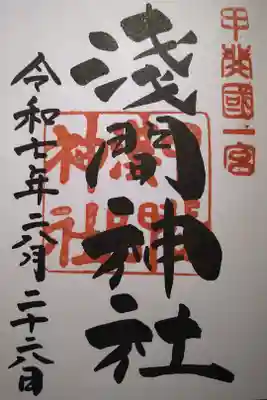 甲斐國一宮
淺間神社
淺間
神社
令和七年六月二十六日